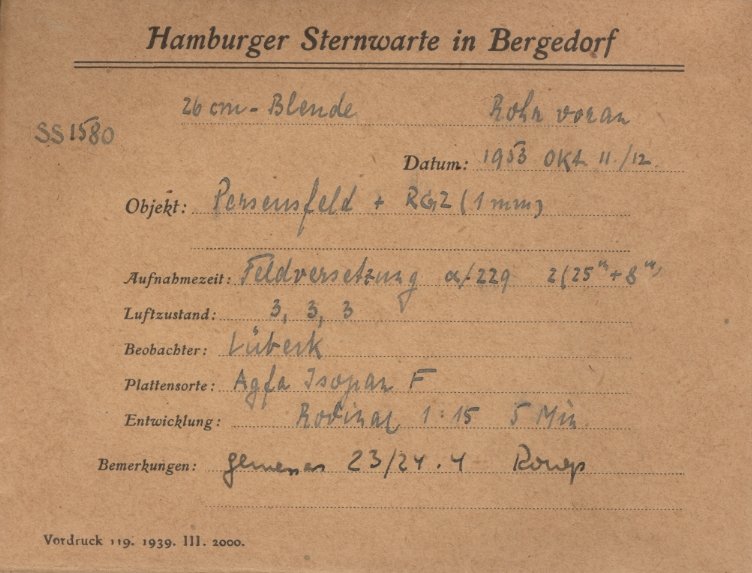 Hamburger Sternwarte in Bergedorf
26 cm-Blende Rohr voran
SS1580
Datum: 1953 Okt 11./12.
Objekt: Perseusfeld + RG2 (1mm)
Aufnahmezeit: Feldversetzung 2(25ᵐ+8ᵐ)
Luftzustand: 3, 3, 3
Beobachter: Lübeck
Plattensorte: Agfa Isopan F
Entwicklung: Rodinal 1:15 5 Min
Bemerkungen: gemessen 23/24.4
Vordruck 119. 1939. III. 2000.